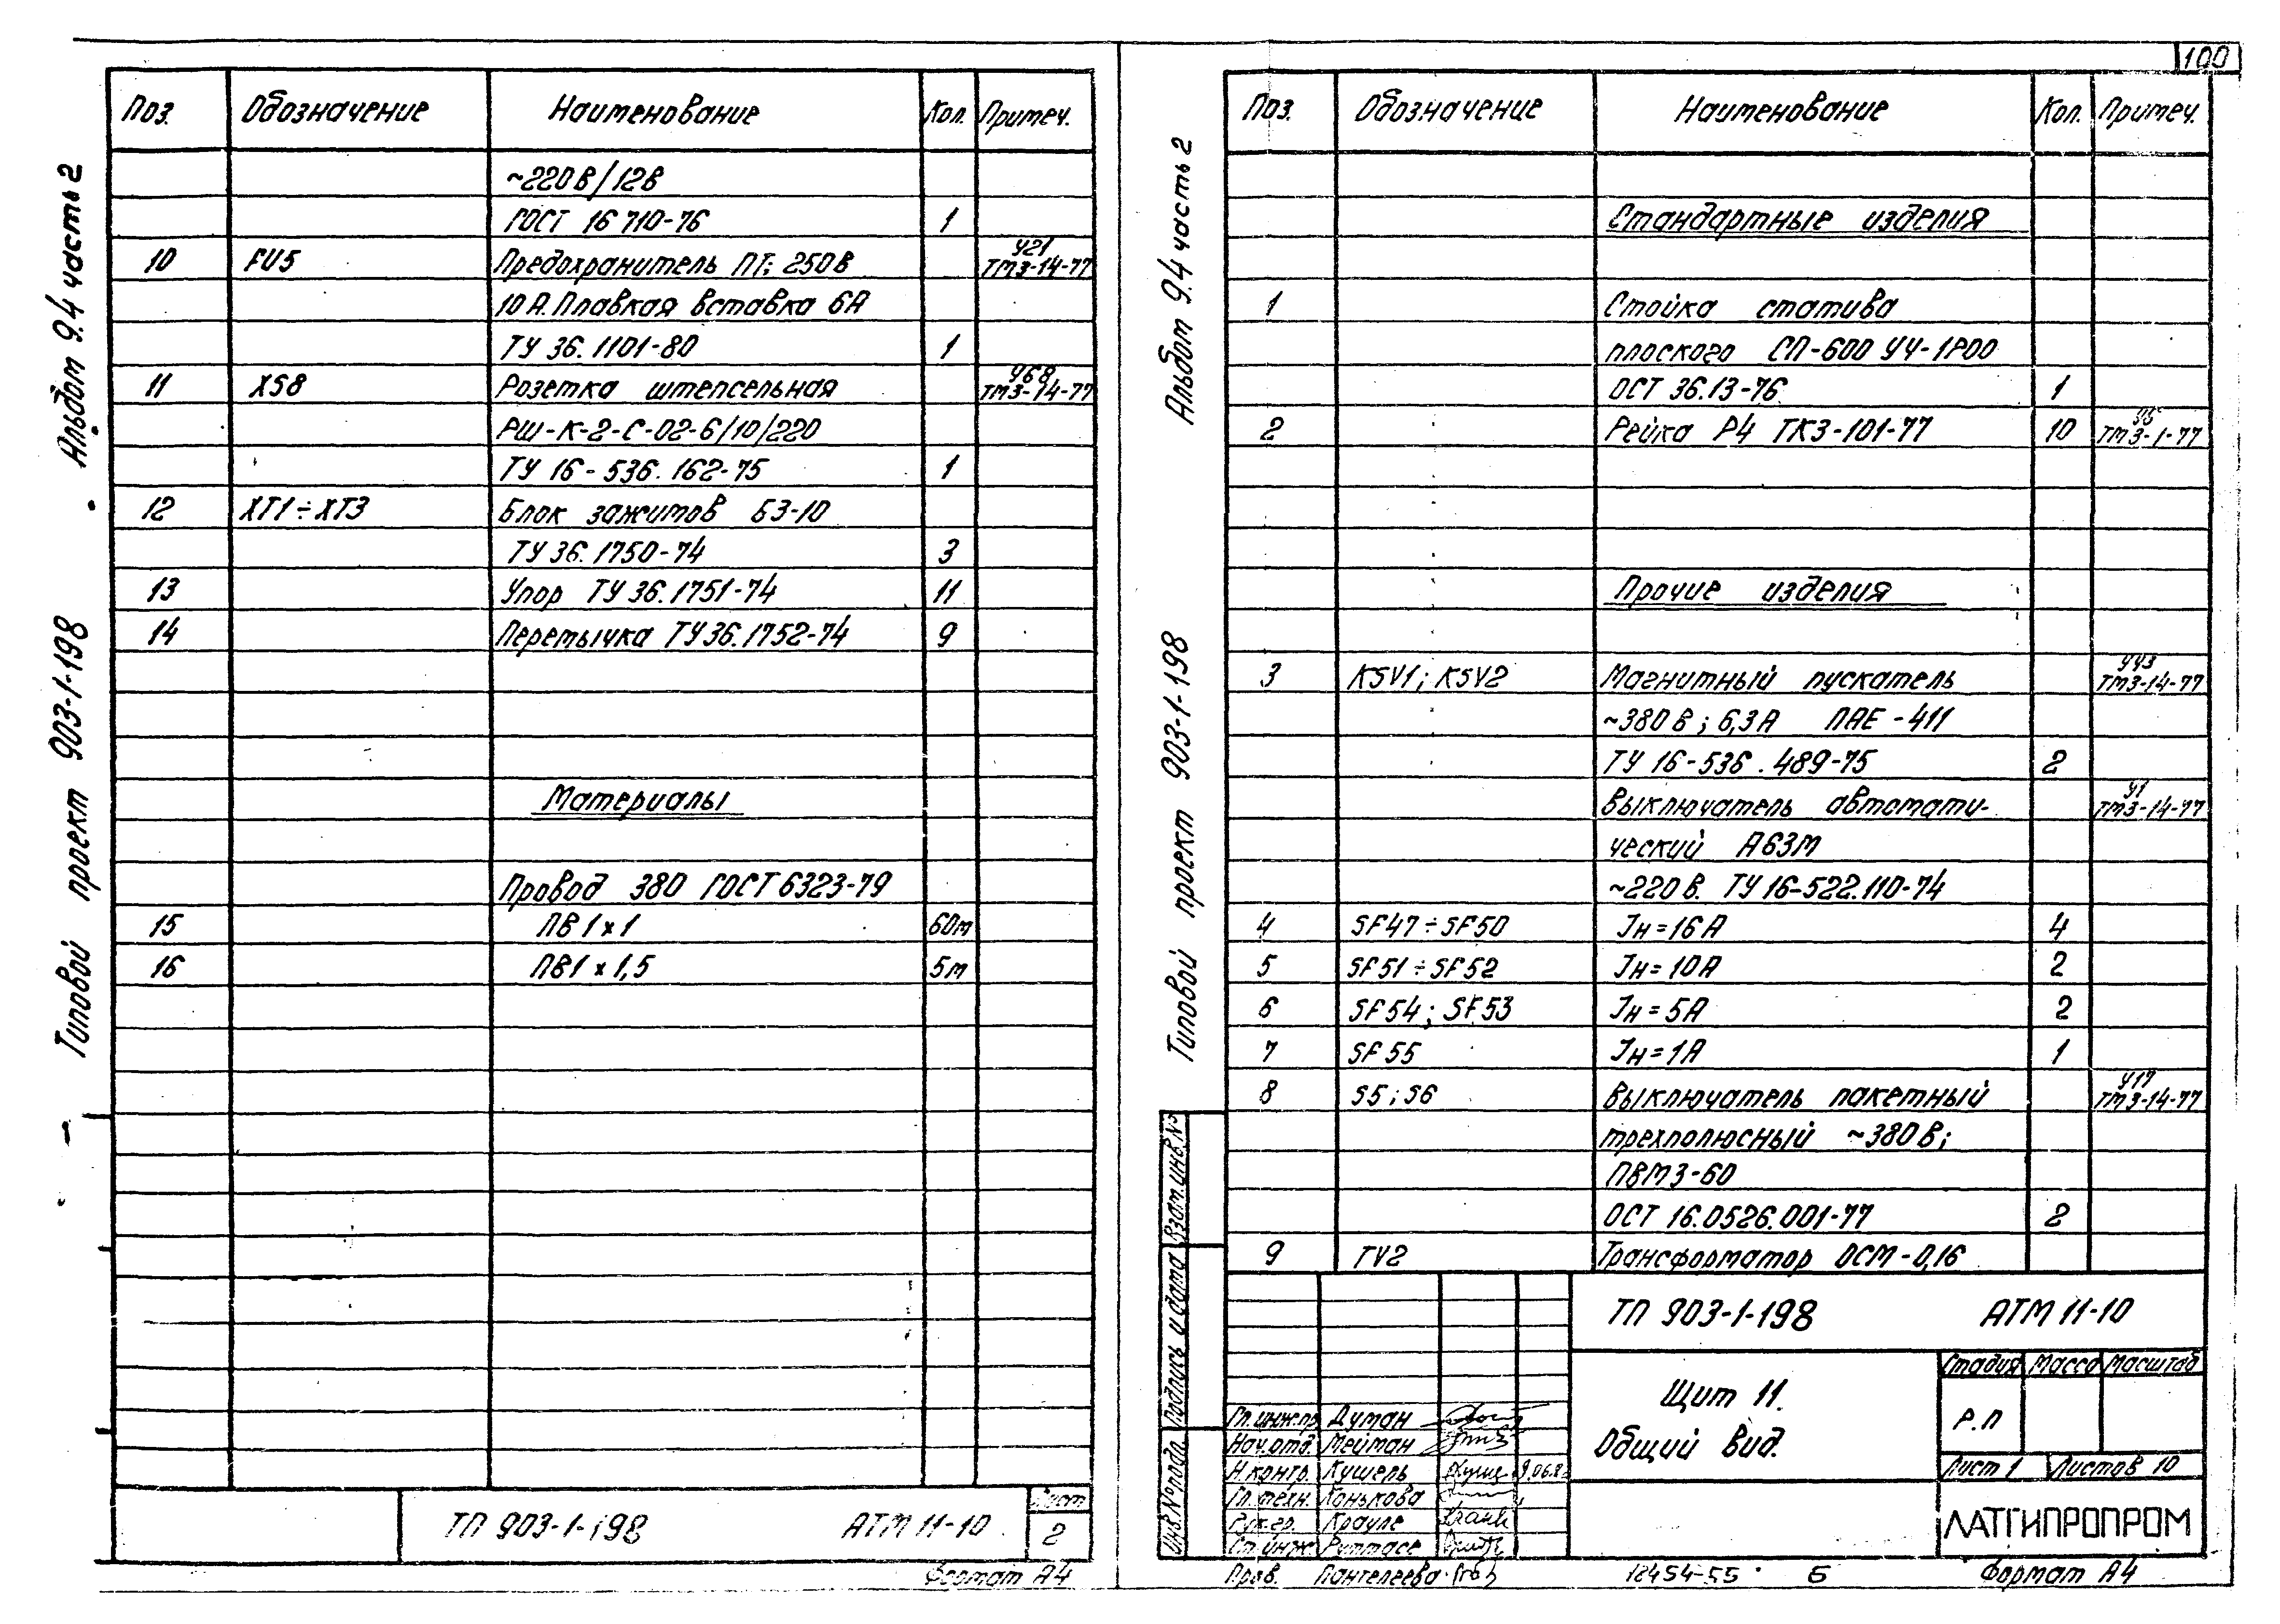 100
Альбом 9.4 часть 2
Типовой проект 903-1-198
Поз. Обозначение Наименование Кол. Примеч.
~220В/12В
ГОСТ 16 710-76 1
10 FU5 Предохранитель ПТ; 250В У21 ТМ3-14-77
10А. Плавкая вставка 6А
ТУ 36.1101-80 1
11 XS8 Розетка штепсельная У68 ТМ3-14-77
РШ-К-2-С-02-6/10/220
ТУ 16-536.162-75 1
12 XT1÷XT3 Блок зажимов БЗ-10
ТУ 36.1750-74 3
13 Упор ТУ 36.1751-74 11
14 Перемычка ТУ 36.1752-74 9
Материалы
Провод 380 ГОСТ 6323-79
15 ПВ 1×1 60м
16 ПВ1×1,5 5м
ТП 903-1-198 АТМ 11-10 Лист
2
Формат А4
Альбом 9.4 часть 2
Типовой проект 903-1-198
Поз. Обозначение Наименование Кол. Примеч.
Стандартные изделия
1 Стойка статива
плоского СП-600 УЧ-1Р00
ОСТ 36.13-76 1
2 Рейка Р4 ТК3-101-77 10 ТМ3-1-77
Прочие изделия
3 KSV1; KSV2 Магнитный пускатель У43 ТМ3-14-77
~380В; 6,3А ПАЕ-411
ТУ 16-536.489-75 2
Выключатель автомати- У1 ТМ3-14-77
ческий А63М
~220В. ТУ 16-522.110-74
4 SF47÷SF50 Jн=16А 4
5 SF51÷SF52 Jн=10А 2
6 SF54; SF53 Jн=5А 2
7 SF55 Jн=1А 1
8 S5; S6 Выключатель пакетный У17 ТМ3-14-77
трехполюсный ~380В;
ПВМ3-60
ОСТ 16.0526.001-77 2
9 TV2 Трансформатор ОСМ-0,16
ТП 903-1-198 АТМ 11-10
Щит 11.
Общий вид.
Стадия Масса Масштаб
Р.П
Лист 1 Листов 10
ЛАТГИПРОПРОМ
Гл.инж.пр. Думан
Нач.отд. Мейман
Н.контр. Кушель
Гл.техн. Конькова
Рук.гр. Крауле
Ст.инж. Руттасе
Пров. Пантелеева
Взам.инв.№
Подпись и дата
Инв.№ подл.
18454-55 Б Формат А4